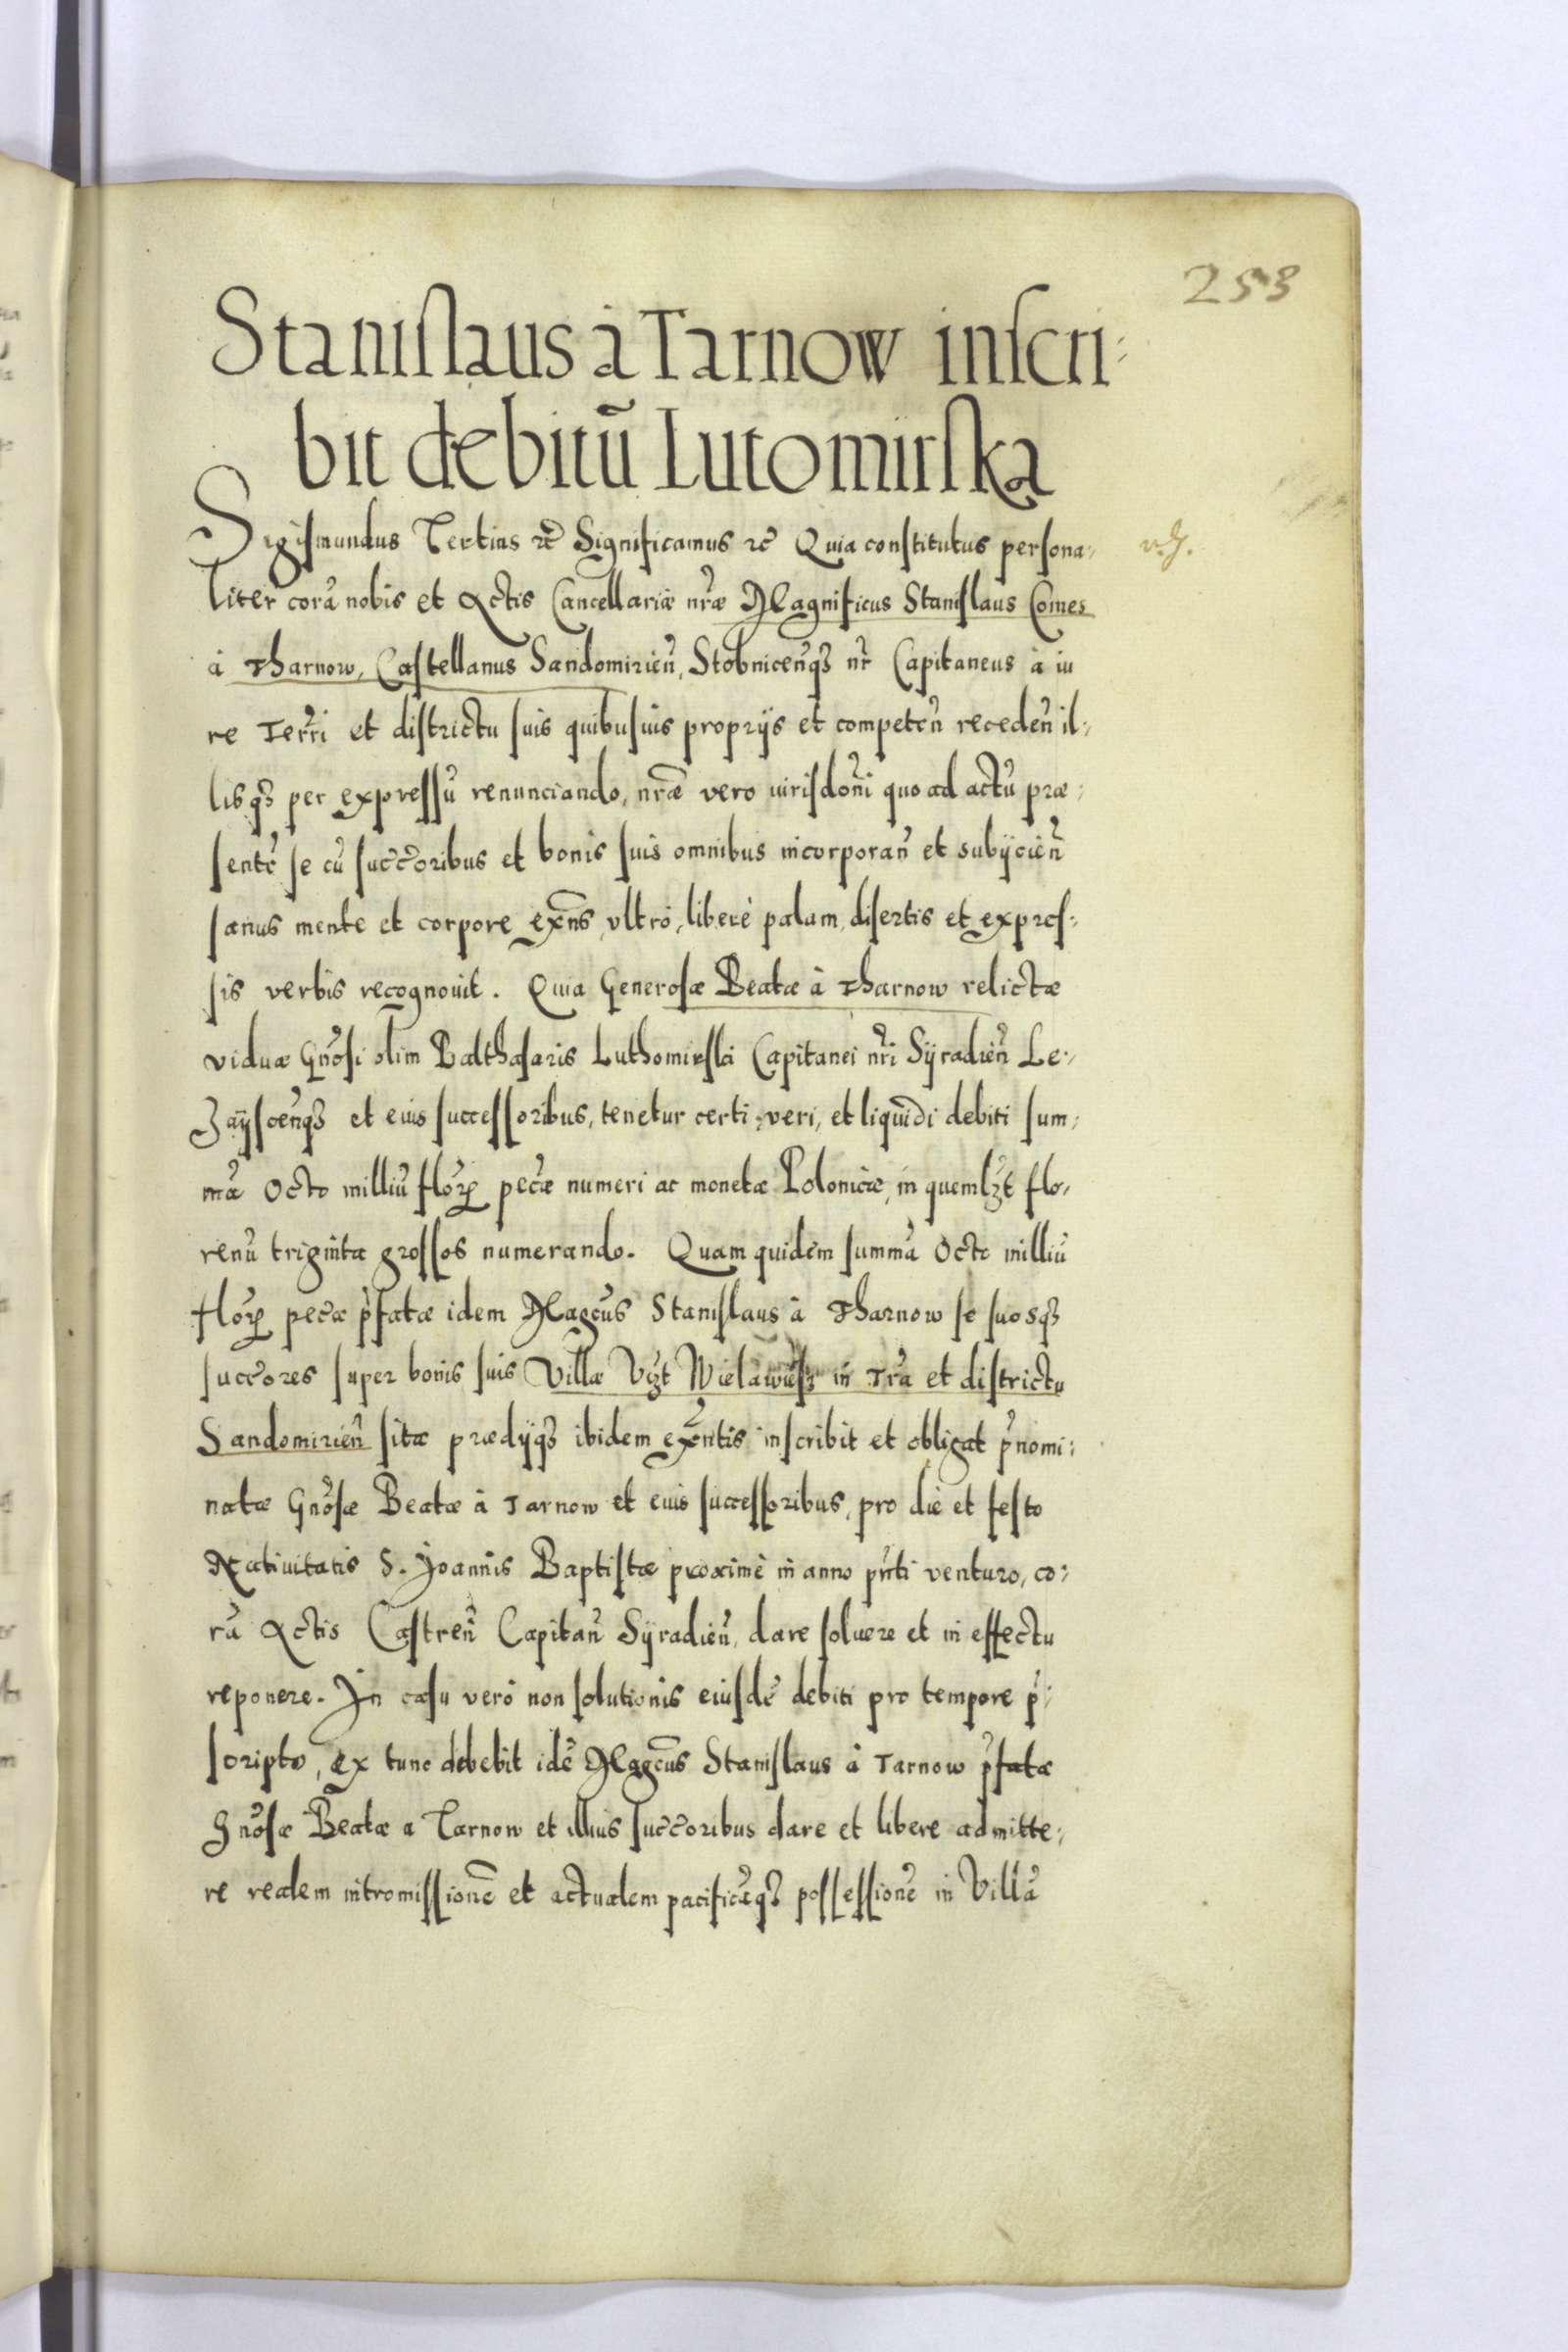 253
Stanislaus à Tarnow inscri-
bit debitū Lutomirska
Sigismundus Tertius rc̃ Significamus rc̃ Quia constitutus persona-
liter corã nobis et Actis Cancellariæ nr̃æ Magnificus Stanislaus Comes
à Tharnow, Castellanus Sandomirien̄, Stobnicen̄qȝ nr̃ Capitaneus à iu
re Terr̃i et districtu suis quibusuis proprijs et competen̄ receden̄ il-
lisqȝ per expressū renunciando, nrãe vero iurisdōni quo ad actū præ-
sentē se cū succ̄oribus et bonis suis omnibus incorporan̄ et subijcien̄
sanus mente et corpore exn̄s, vltrò, liberè palam, disertis et expres-
sis verbis recognouit. Quia Generosæ Beatæ à Tharnow relictæ
viduæ Gn̄osi olim Balthasaris Luthomirski Capitanei nr̃i Syradien̄ Le-
zayscen̄qȝ et eius successoribus, tenetur certi, veri, et liquidi debiti sum-
mã Octo milliū flōrꝝ pec̄æ numeri ac monetæ Polonicæ, in quemlȝt flo-
renū triginta grossos numerando. Quam quidem summã Octo milliū
flōrꝝ pec̄æ p̄fatæ idem Magc̄us Stanislaus à Tharnow se suosqȝ
succ̄ores super bonis suis Villæ Vȝt Wielawiesz in Tr̃a et districtu
Sandomirien̄ sitæ prædijqȝ ibidem exn̄tis inscribit et obligat p̄nomi-
natæ Gn̄osæ Beatæ à Tarnow et eius successoribus, pro die et festo
Natiuitatis S. Joannis Baptistæ proximè in anno pn̄ti venturo, co-
rã Actis Castren̄ Capitan̄ Syradien̄, dare soluere et in effectu
reponere. In casu verò non solutionis eiusdē debiti pro tempore p̄-
scripto, ex tunc debebit idē Magc̄us Stanislaus à Tarnow p̄fatæ
Gn̄osæ Beatæ a Tarnow et illius succ̄oribus dare et libere admitte-
re realem intromissionē et actualem pacificãqȝ possessionē in Villã